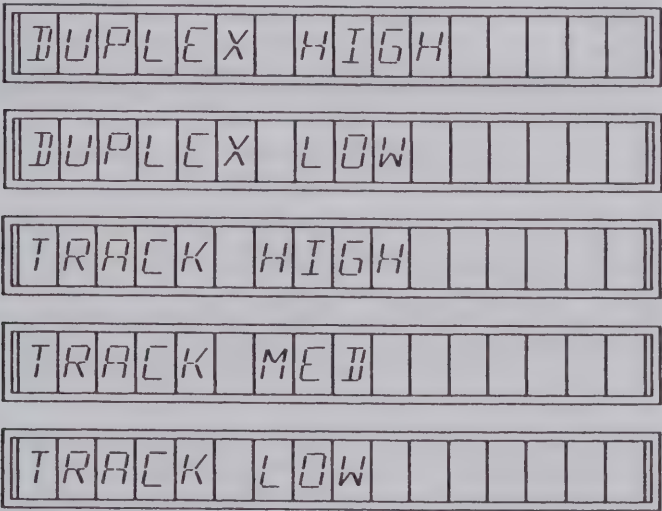 DUPLEX HIGH
DUPLEX LOW
TRACK HIGH
TRACK MED
TRACK LOW